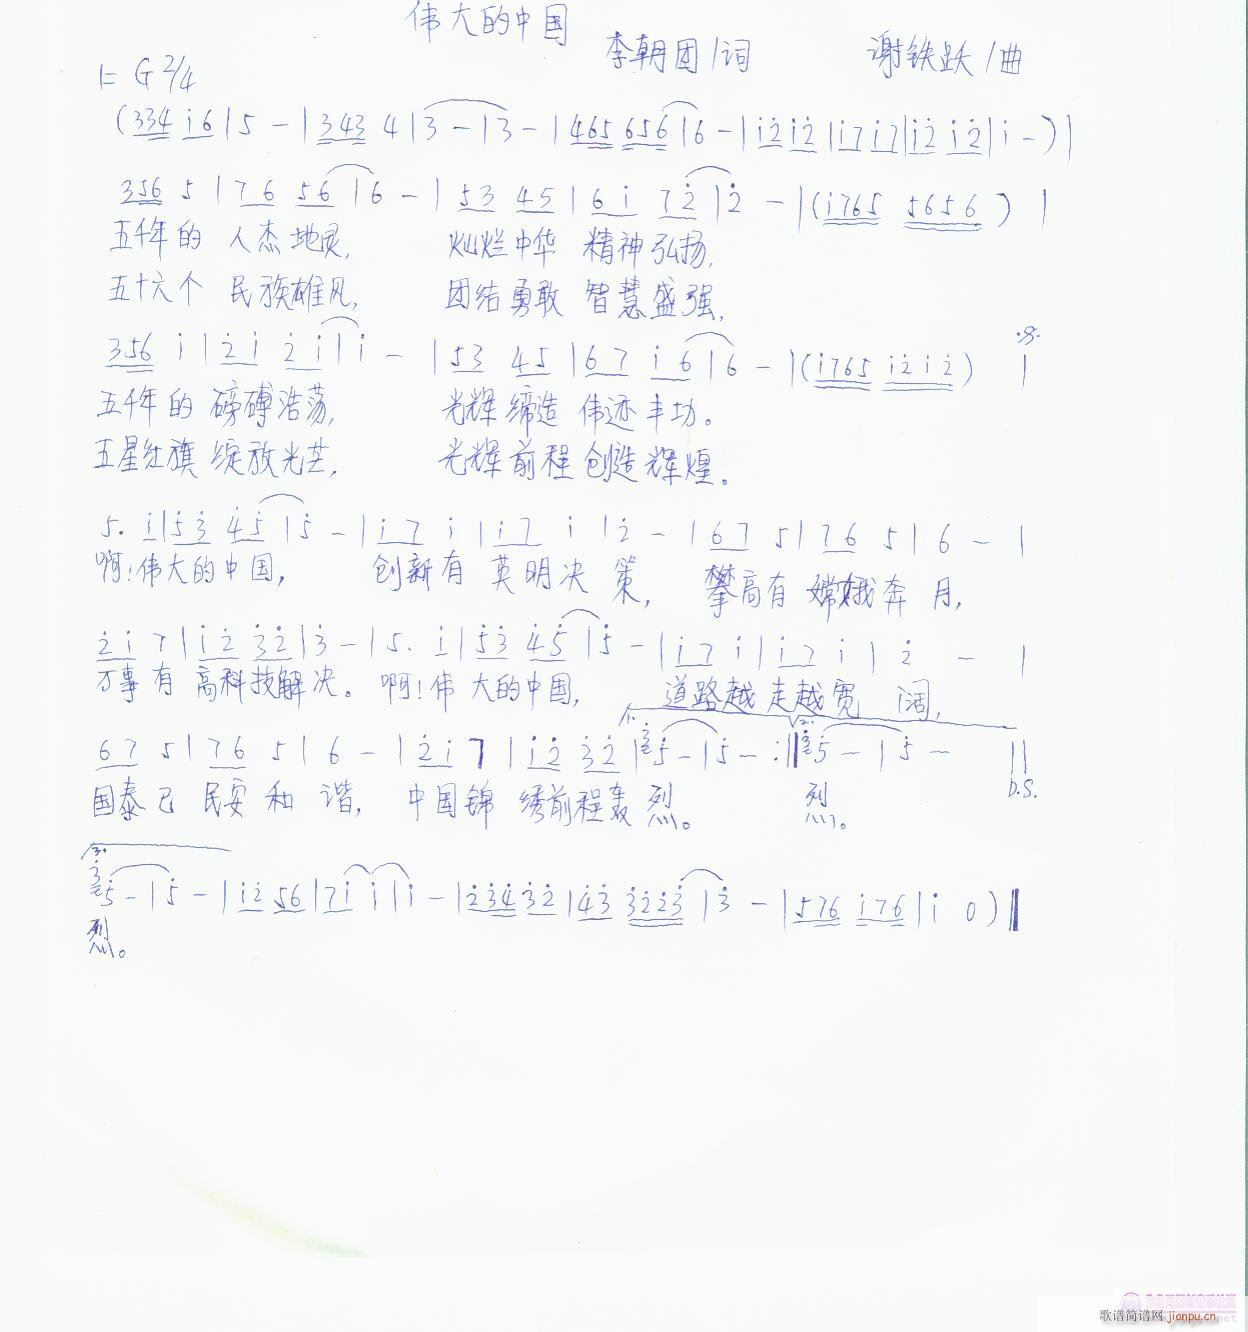 伟大的中国
李朝团/词 谢铁跃/曲
1=G 2/4
(334 i6|5 -|343 4|3 -|3 -|465 656|6 -|i2 i2|i7 i7|i2 i2|i -)|
356 5|76 56|6 -|53 45|6i 72|2 -|(i765 5656)|
五千年的 人杰地灵, 灿烂中华 精神弘扬,
五十六个 民族雄风, 团结勇敢 智慧盛强,
356 i|2i 2i|i -|53 45|67 i6|6 -|(i765 i2i2)|
五千年的 磅礴浩荡, 光辉缔造 伟迹丰功。
五星红旗 绽放光芒, 光辉前程 创造辉煌。
5. i|53 45|5 -|i7 i|i7 i|2 -|67 5|76 5|6 -|
啊!伟大的中国, 创新有 英明决 策, 攀高有 嫦娥奔 月,
2i 7|i2 32|3 -|5. i|53 45|5 -|i7 i|i7 i|2 -|
万事有 高科技解决。 啊!伟 大的中国, 道路越 走越宽 阔,
1. 2.
67 5|76 5|6 -|2i 7|i2 32|5 -|5 -:||5 -|5 -||
D.S.
国泰已 民安 和 谐, 中国锦 绣前程轰 烈。 烈。
3.
5 -|5 -|i2 56|7i i|i -|234 32|43 3223|3 -|576 i76|i 0)||
烈。
歌谱简谱网 jianpu.cn